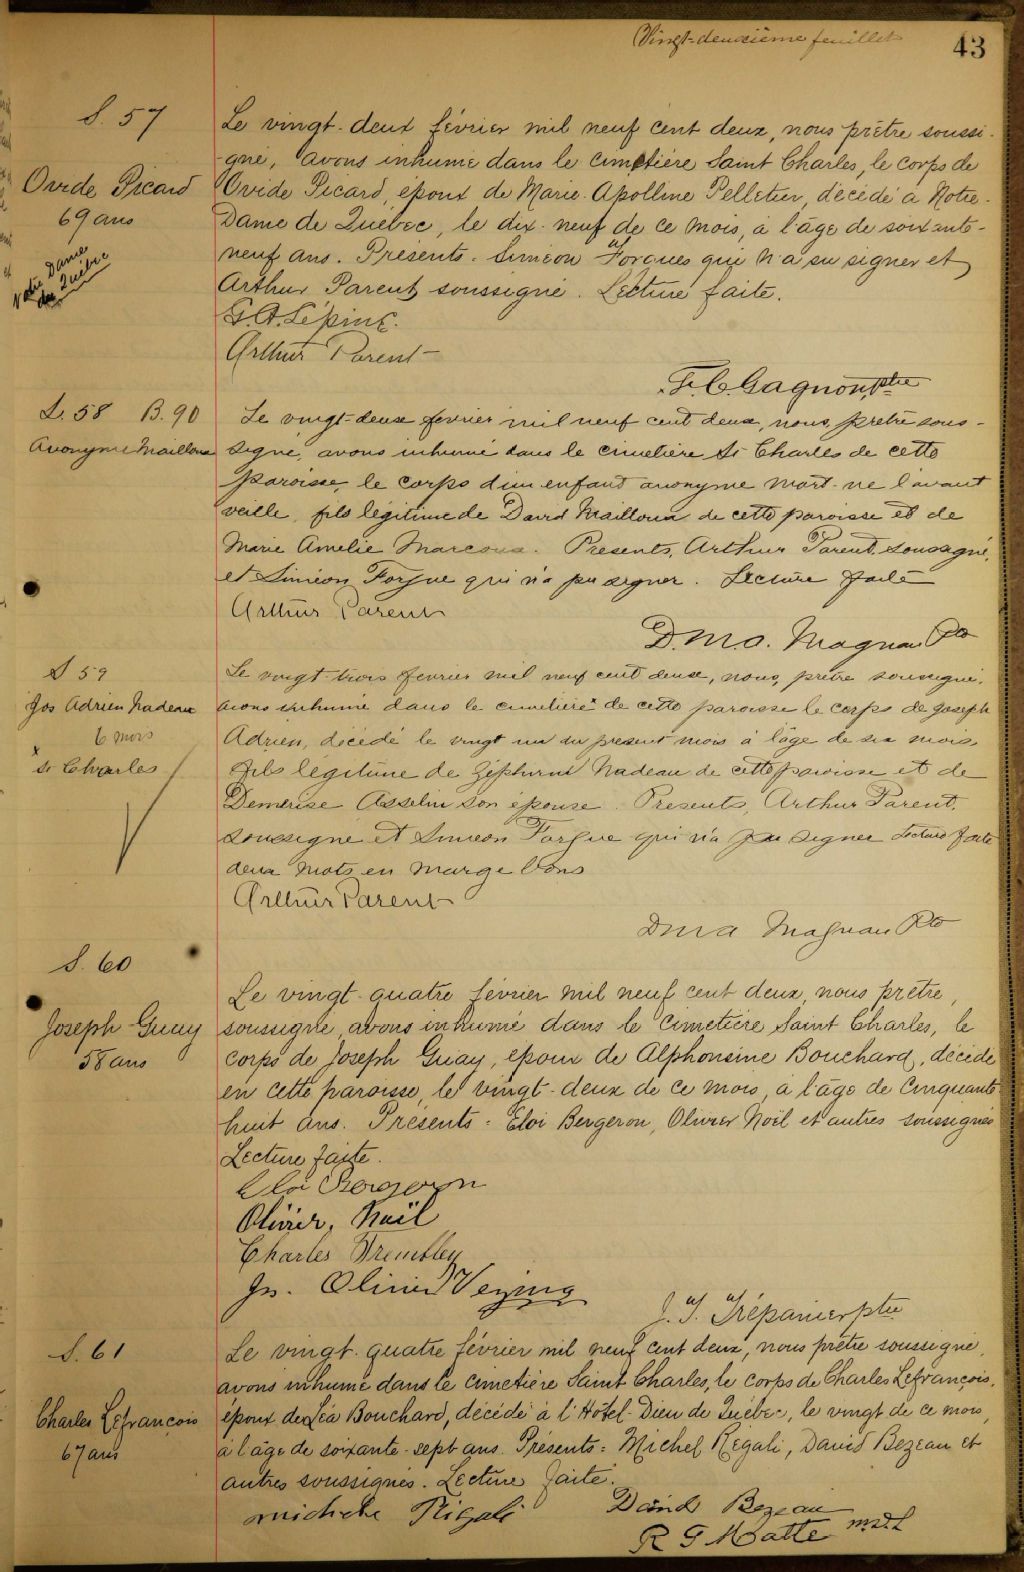 Vingt-deuxième feuillet
43
S. 57
Ovide Picard
69 ans
Notre Dame
de Québec
Le vingt-deux février mil neuf cent deux, nous prêtre soussi-
-gné, avons inhumé dans le cimetière Saint Charles, le corps de
Ovide Picard, époux de Marie-Apolline Pelletier, décédé à Notre-
Dame de Québec, le dix-neuf de ce mois, à l'âge de soixante-
neuf ans. Présents. Siméon Forgues qui n'a su signer et
Arthur Parent soussigné. Lecture faite.
G.A. Lépine.
Arthur Parent
F. C. Gagnon, ptre
S. 58 B. 90
Anonyme Mailloux
Le vingt-deux février mil neuf cent deux, nous, prêtre sous-
signé, avons inhumé dans le cimetière St Charles de cette
paroisse, le corps d'un enfant anonyme mort-né l'avant
veille, fils légitime de David Mailloux de cette paroisse et de
Marie Amelie Marcoux. Présents, Arthur Parent, soussigné,
et Siméon Forgue qui n'a pu signer. Lecture faite
Arthur Parent
D.M.A. Magnan Ptre
S 59
Jos Adrien Nadeau
6 mois
x
St Charles
Le vingt-trois février mil neuf cent deux, nous, prêtre soussigné,
avons inhumé dans le cimetière x de cette paroisse le corps de Joseph
Adrien, décédé le vingt un du présent mois à l'âge de six mois,
fils légitime de Zéphirin Nadeau de cette paroisse et de
Demerise Asselin son épouse. Présents, Arthur Parent,
soussigné et Simeon Forgue qui n'a pu signer Lecture faite
deux mots en marge bons
Arthur Parent
DMA Magnan Ptre
S. 60
Joseph Guay
58 ans
Le vingt-quatre février mil neuf cent deux, nous prêtre,
soussigné, avons inhumé dans le cimetière Saint Charles, le
corps de Joseph Guay, époux de Alphonsine Bouchard, décédé
en cette paroisse, le vingt-deux de ce mois, à l'âge de cinquante
huit ans. Présents = Eloi Bergeron, Olivier Noël et autres soussignés
Lecture faite.
Eloi Bergeron
Olivier, Noël
Charles Trembley
Jos. Olivier Vezina
J. T. Trépanier ptre
S. 61
Charles Lefrançois
67 ans
Le vingt-quatre février mil neuf cent deux, nous prêtre soussigné,
avons inhumé dans le cimetière Saint Charles, le corps de Charles Lefrançois,
époux de Léa Bouchard, décédé à l'Hôtel-Dieu de Québec, le vingt de ce mois,
à l'âge de soixante-sept ans. Présents = Michel Regali, David Bezeau et
autres soussignés. Lecture faite.
michele Rigali David Bezeau
R G Matte